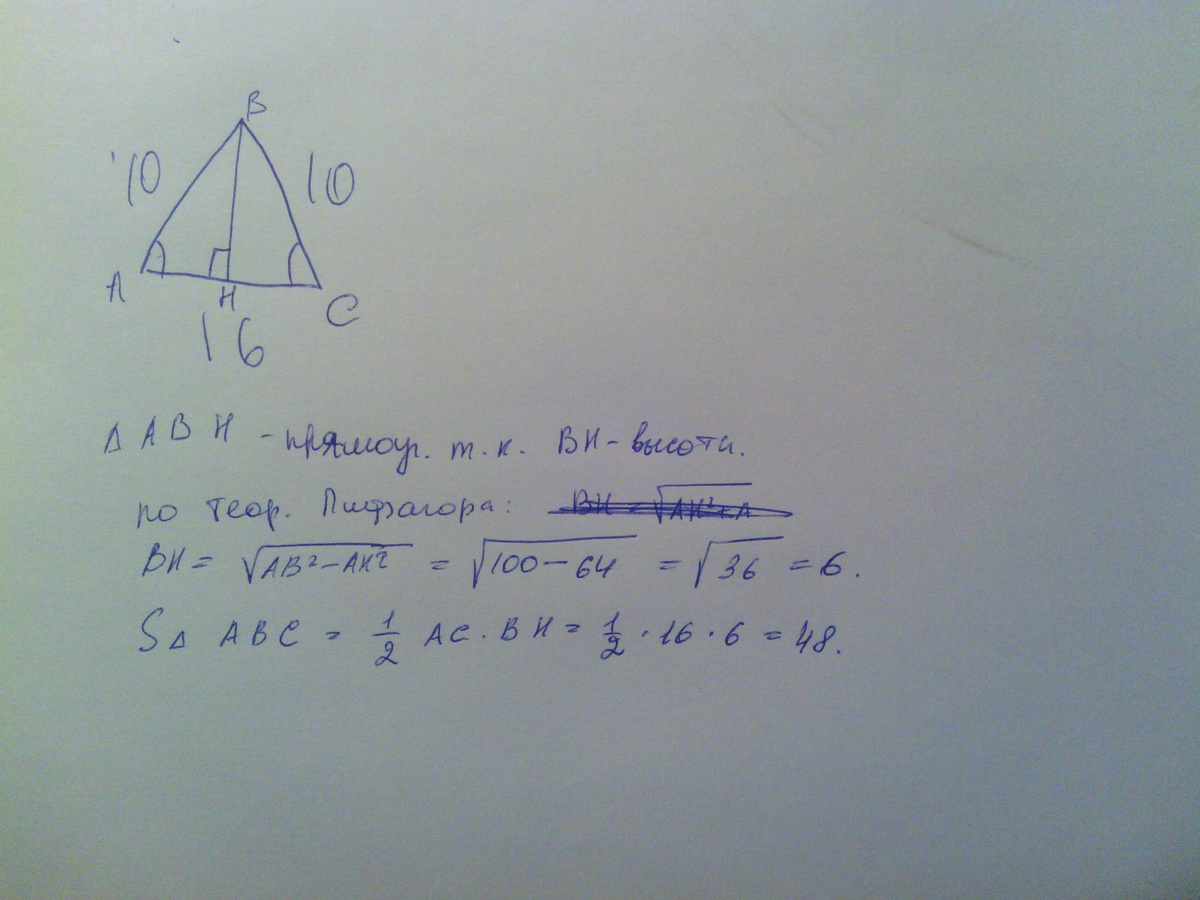 B
10 10
A H C
16
Δ ABH - прямоуг. т.к. BH - высота.
по теор. Пифагора:
BH = √AB²-AH² = √100-64 = √36 = 6.
SΔ ABC = 1/2 AC · BH = 1/2 · 16 · 6 = 48.